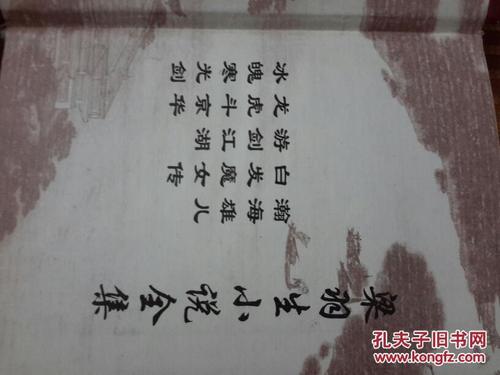 冰魄寒光剑
龙虎斗京华
游剑江湖
白发魔女传
瀚海雄风
梁羽生小说全集
孔夫子旧书网
www.kongfz.com